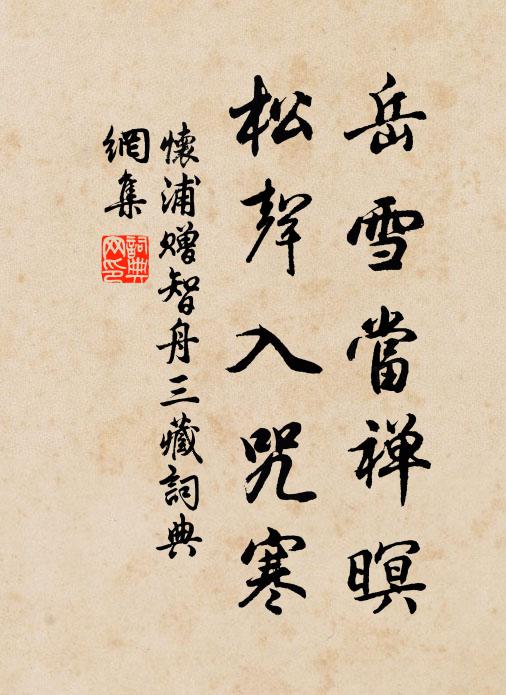 岳雪當禅暝
松聲入咒寒
懷浦赠智舟三藏詞典
網集
詞典
网印